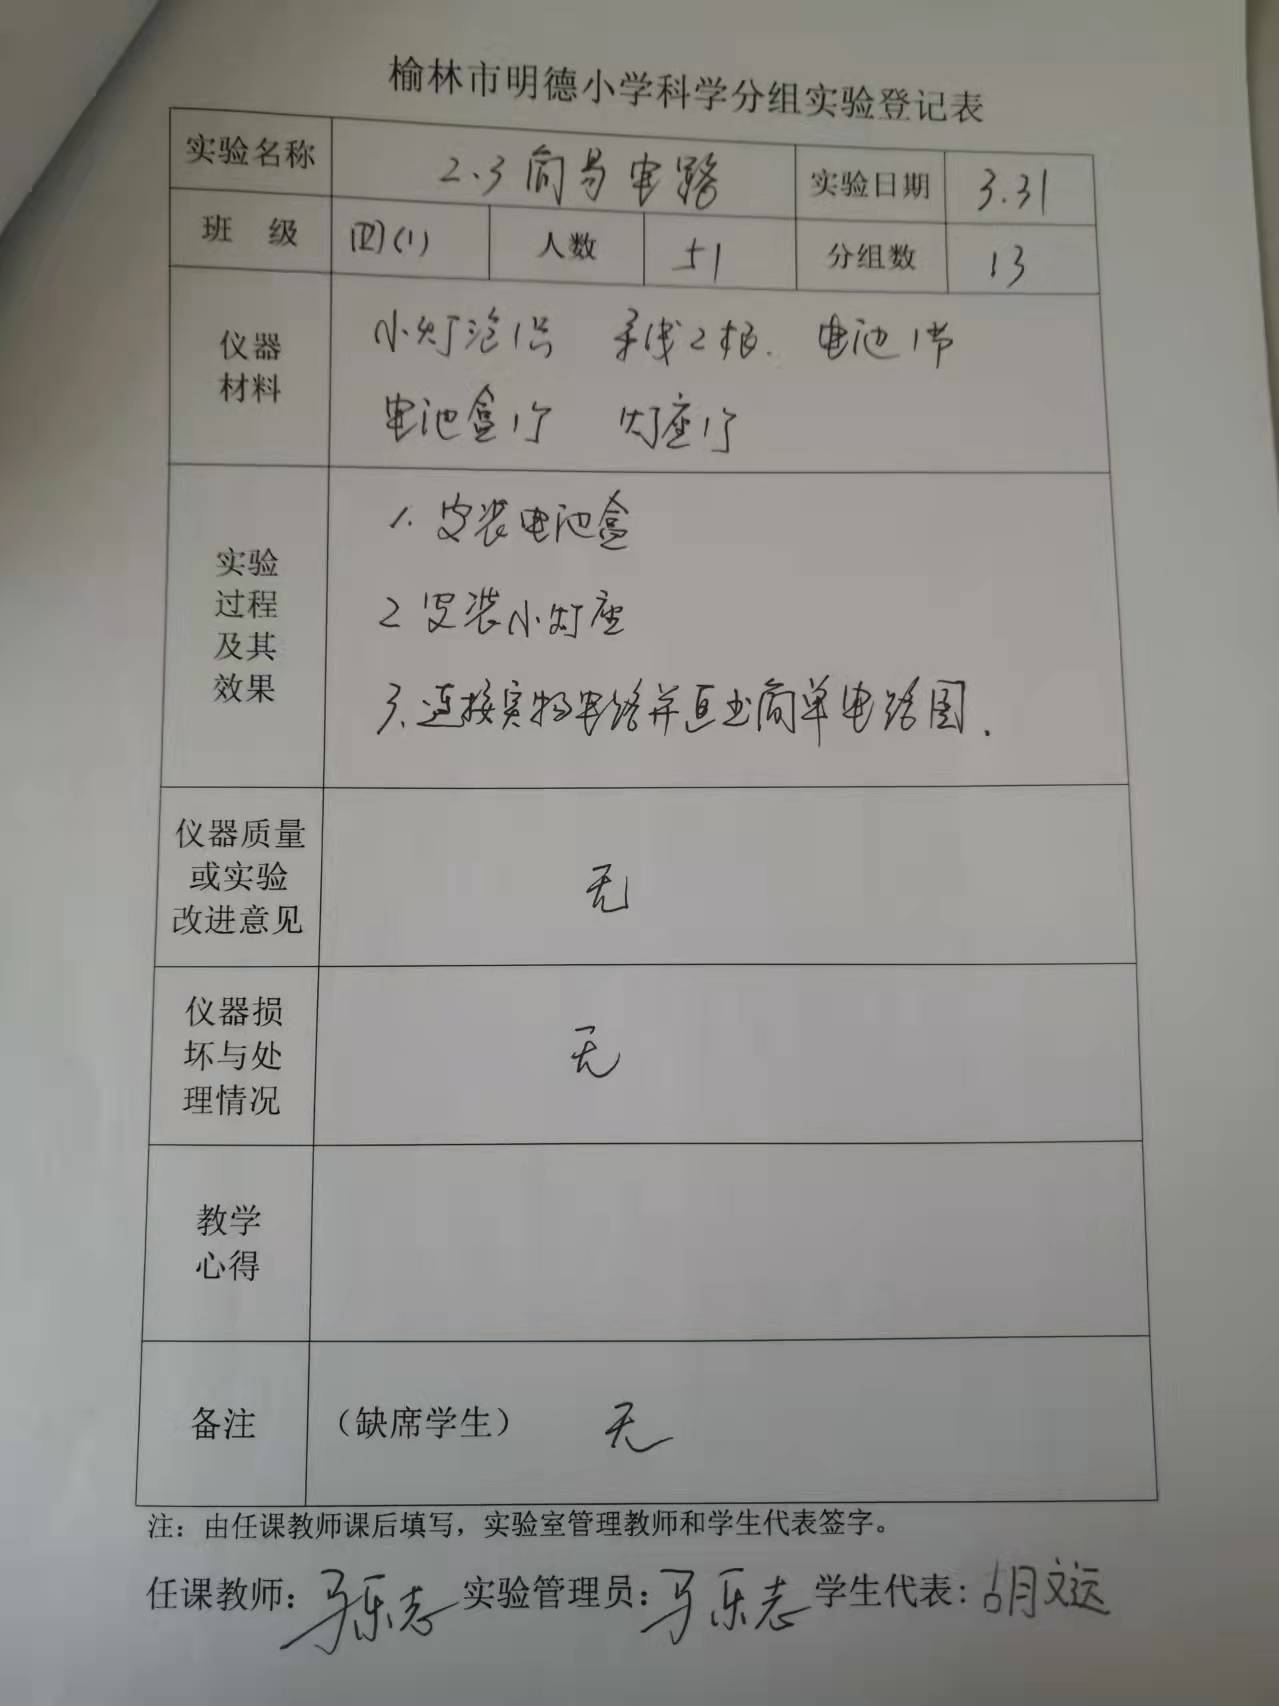 榆林市明德小学科学分组实验登记表
实验名称 2.3简易电路 实验日期 3.31
班 级 四(1) 人数 51 分组数 13
仪器
材料
小灯泡1只 导线2根. 电池1节
电池盒1个 灯座1个
实验
过程
及其
效果
1. 安装电池盒
2 安装小灯座
3. 连接实物电路并画出简单电路图.
仪器质量
或实验
改进意见
无
仪器损
坏与处
理情况
无
教学
心得
备注 (缺席学生) 无
注：由任课教师课后填写，实验室管理教师和学生代表签字。
任课教师: 马乐志 实验管理员: 马乐志 学生代表: 胡文远